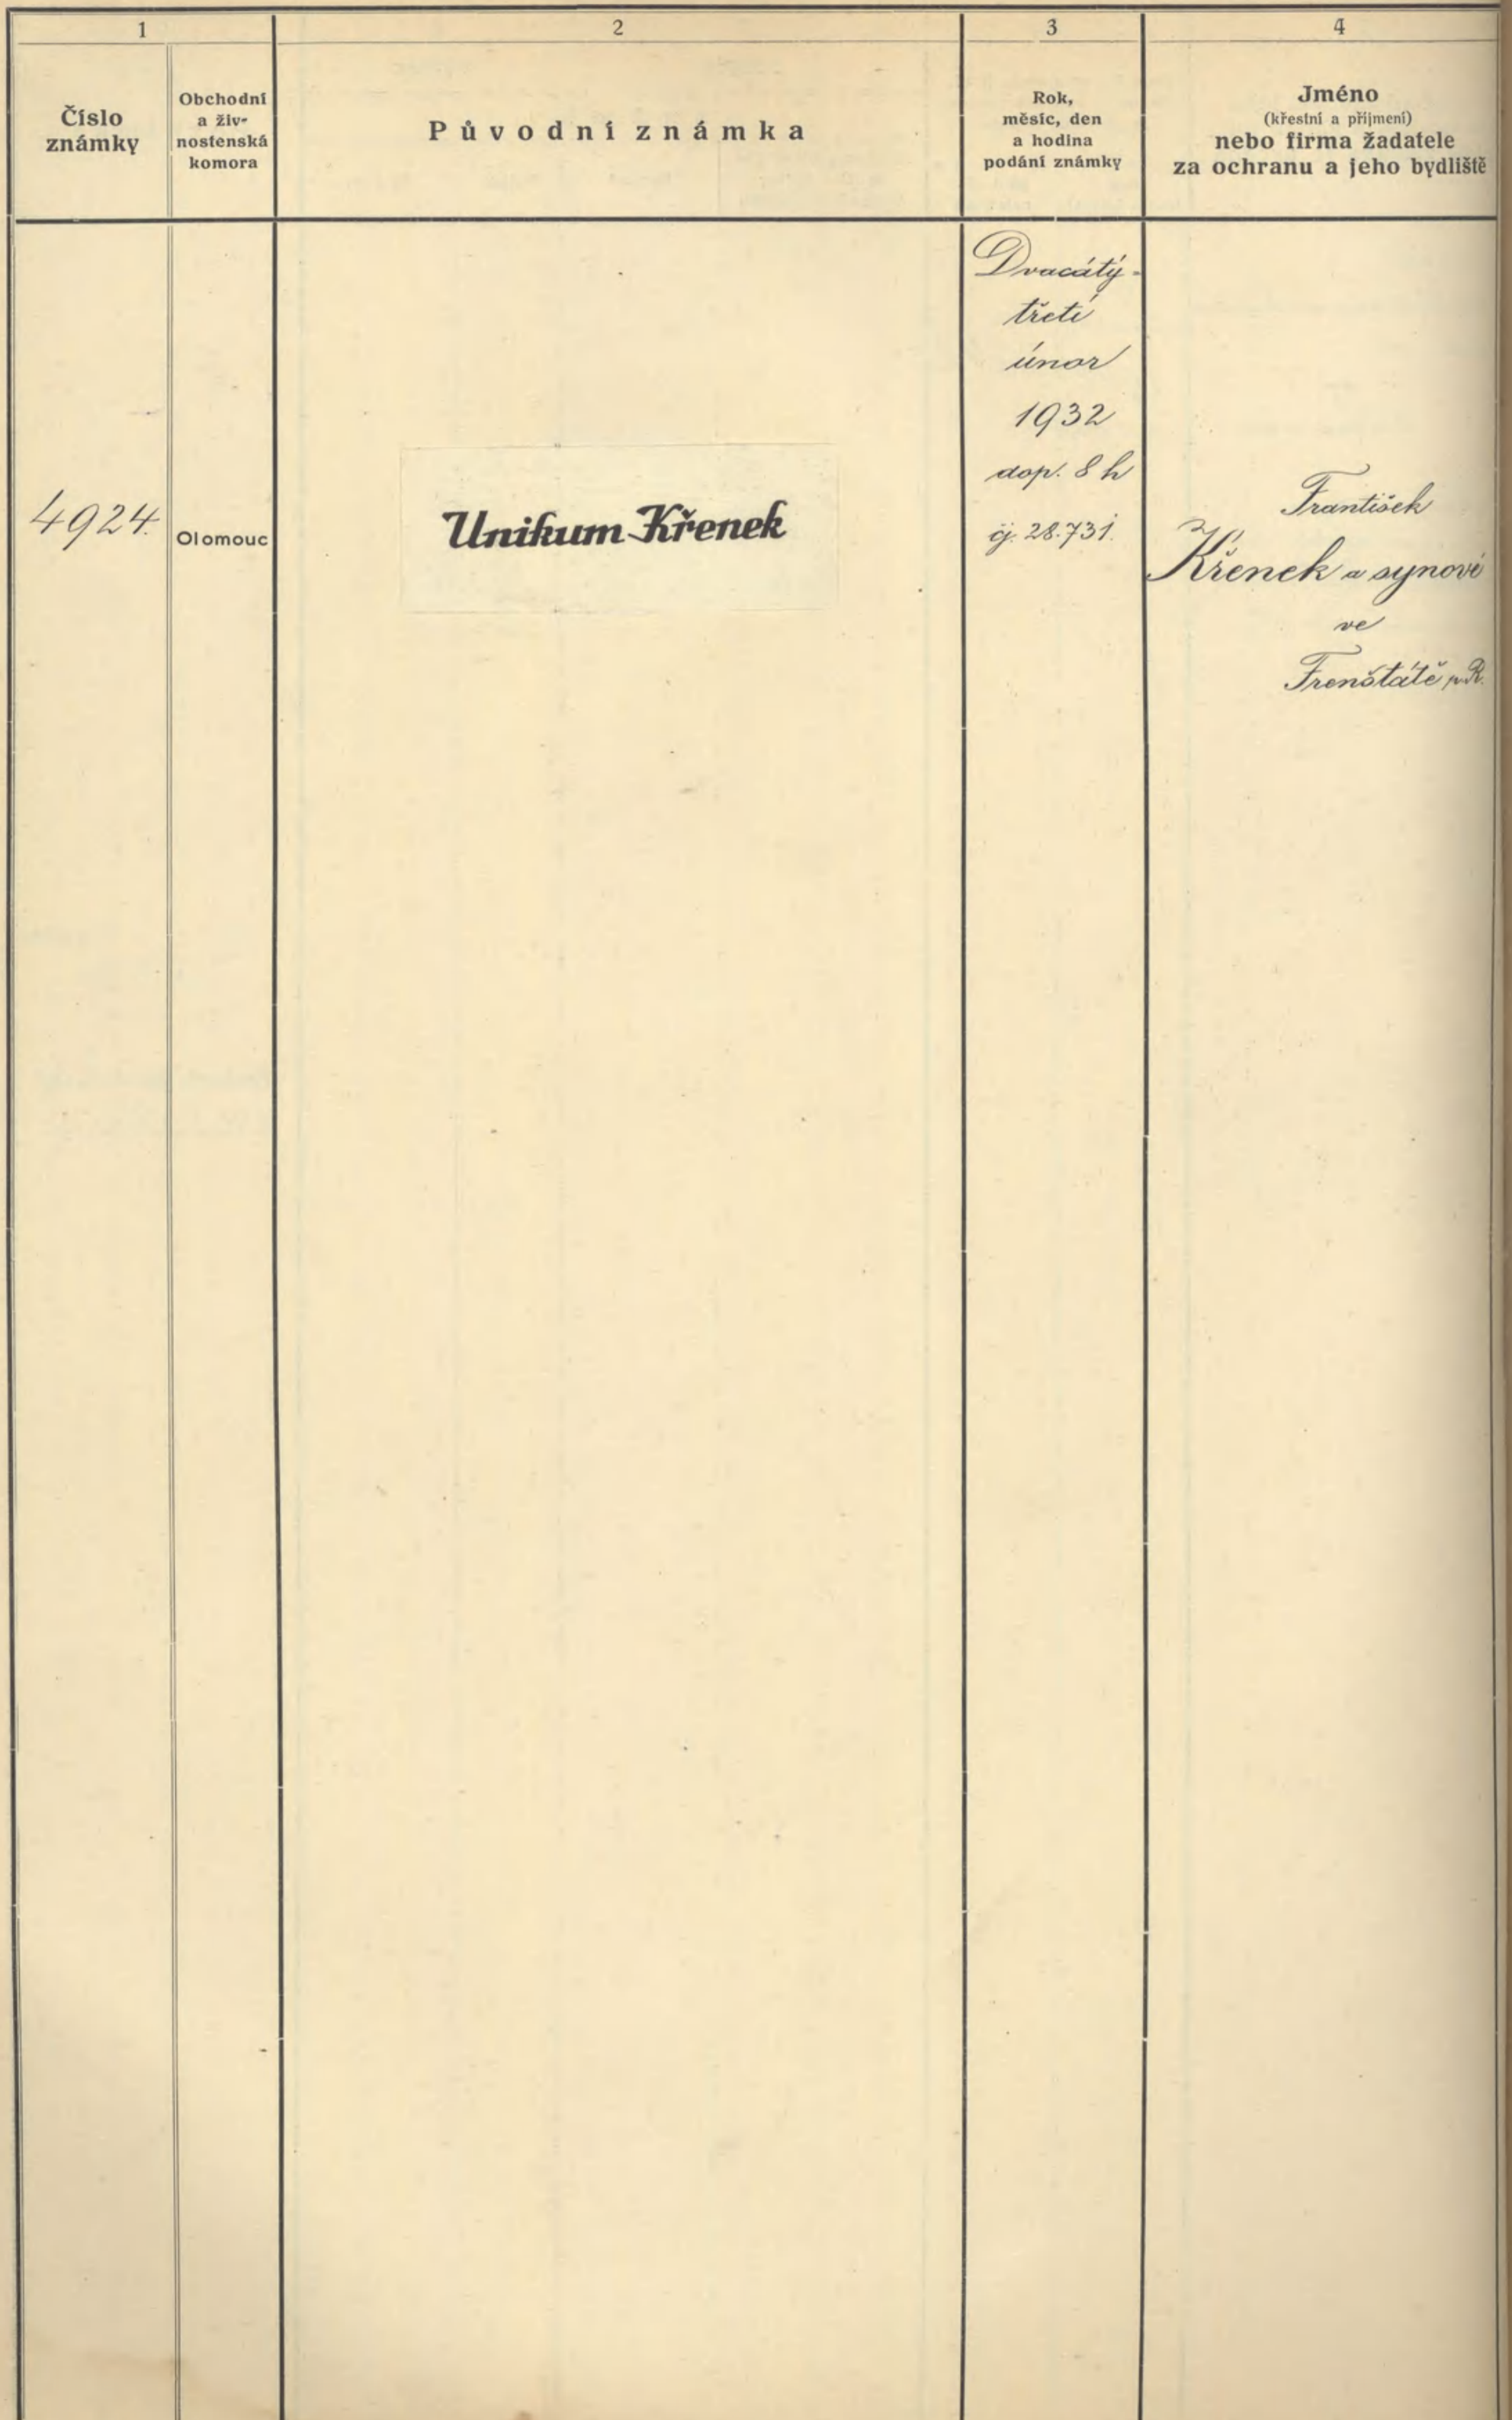 1
2
3
4
Číslo
známky
Obchodní
a živ-
nostenská
komora
Původní známka
Rok,
měsíc, den
a hodina
podání známky
Jméno
(křestní a přijmení)
nebo firma žadatele
za ochranu a jeho bydliště
4924.
Olomouc
Unikum Křenek
Dvacátý-
třetí
únor
1932
dop. 8 h
čj. 28.731.
František
Křenek a synové
ve
Frenštátě p. R.